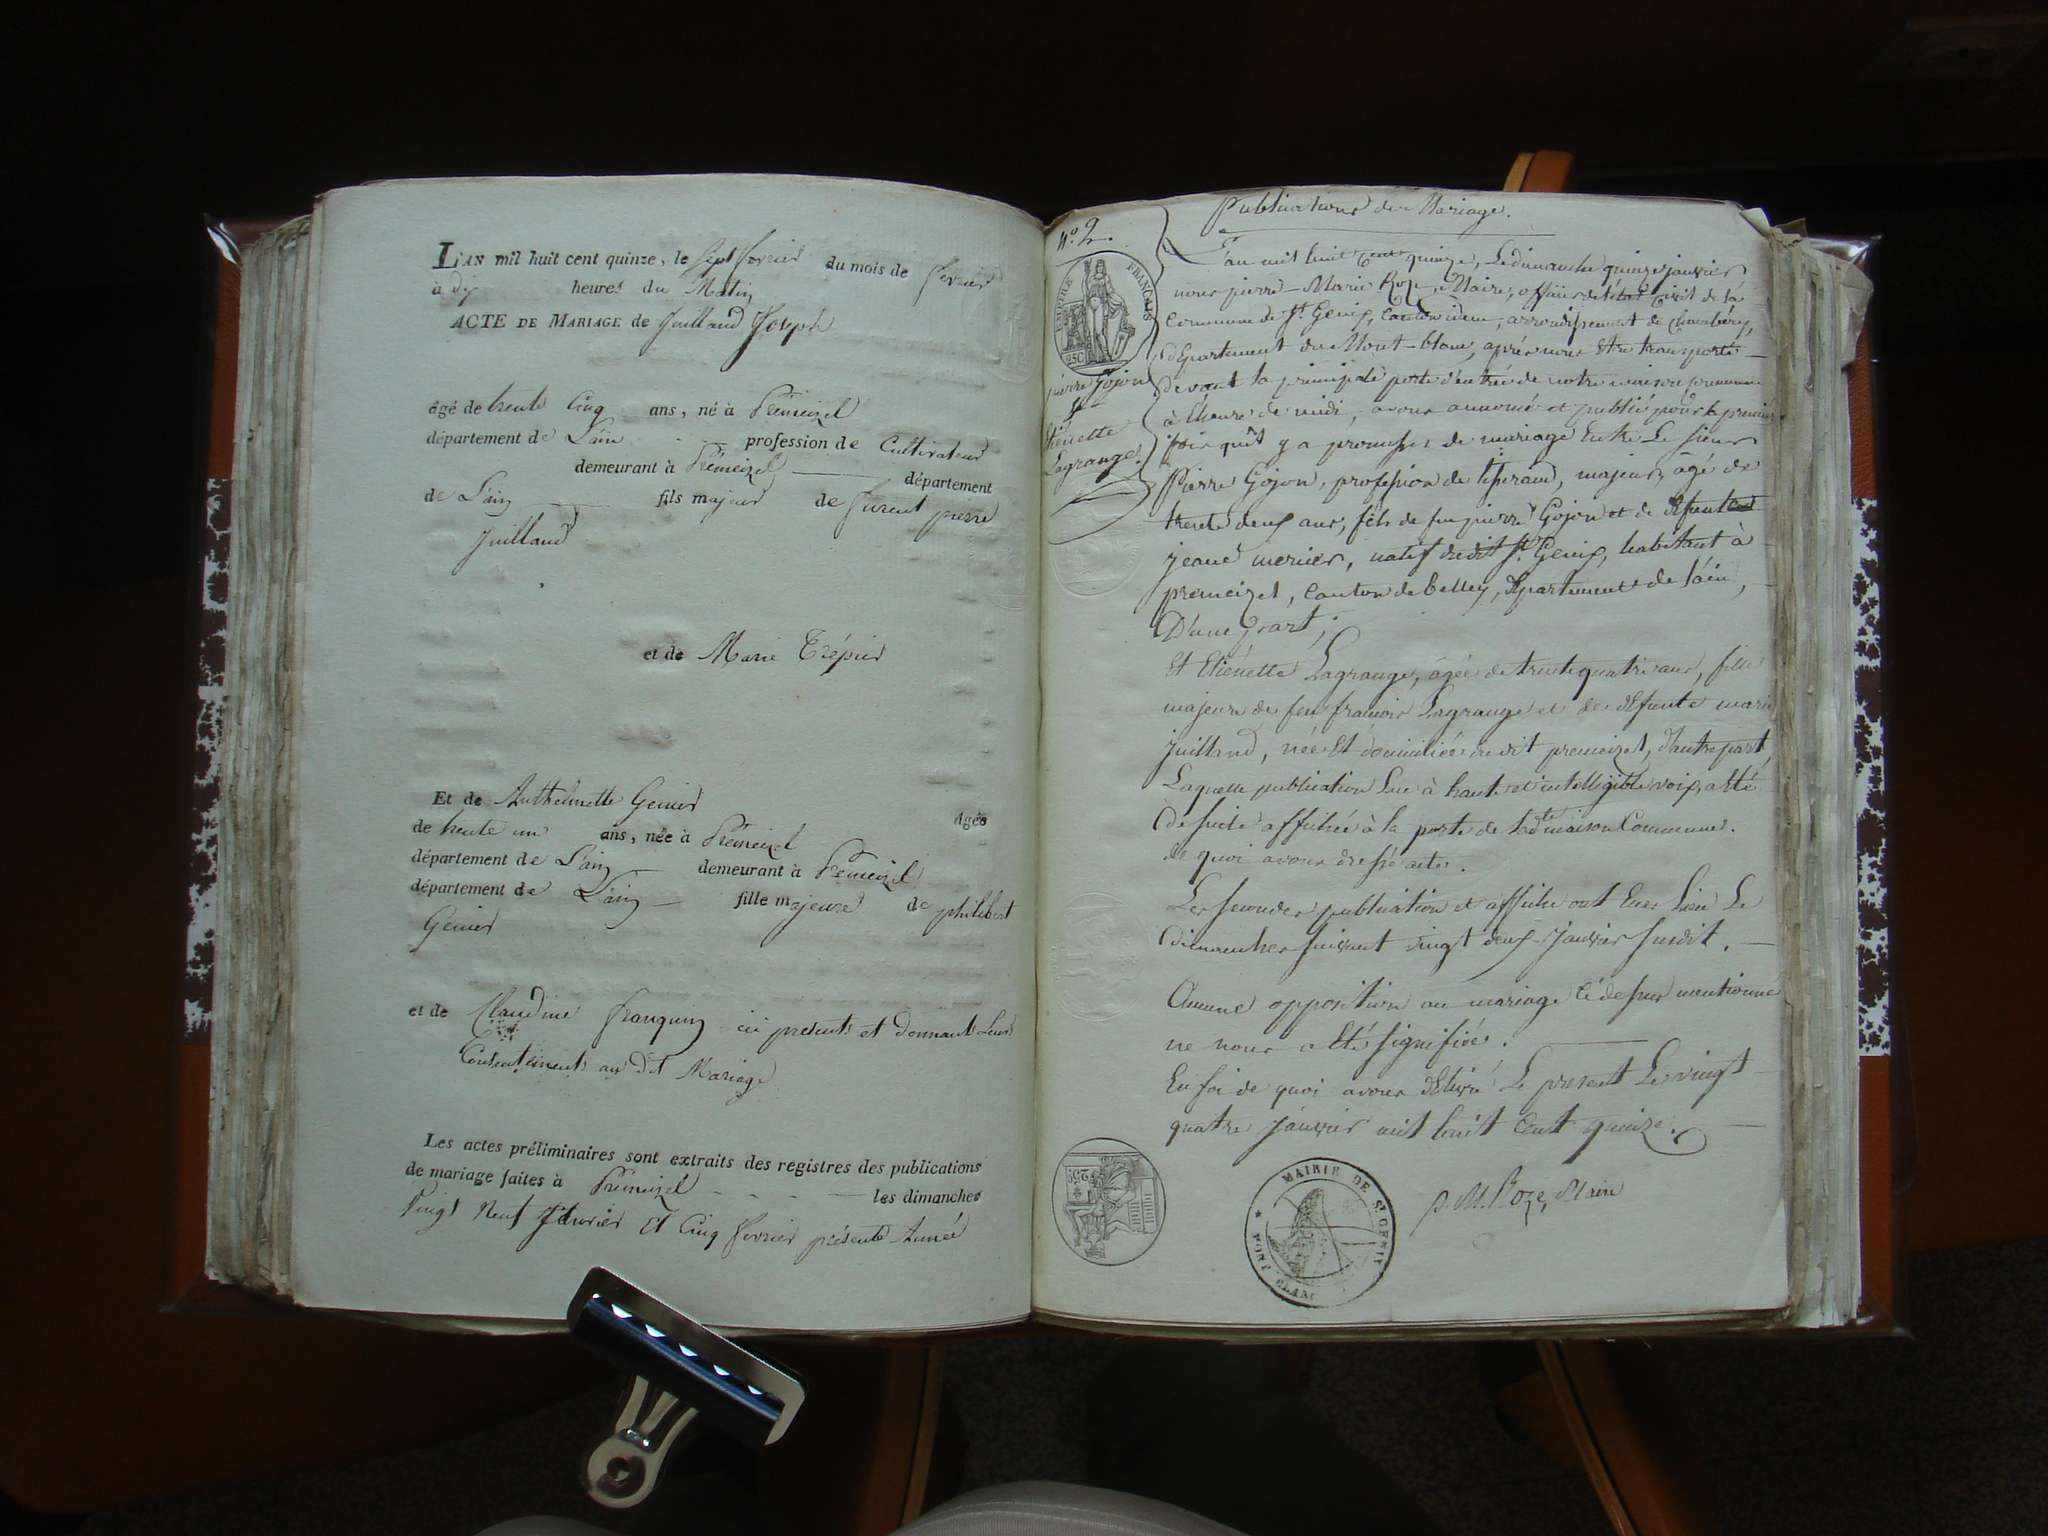 L'AN mil huit cent quinze, le sept fevrier du mois de fevrier
à dix heures du Matin
ACTE DE MARIAGE de Juilland Joseph
âgé de trente Cinq ans, né à Prémeizel
département de L'ain profession de Cultivateur
demeurant à Prémeizel département
de L'ain fils majeur de furent pierre
Juilland
et de Marie Trépier
Et de Anthelmette Genier âgée
de trente un ans, née à Prémeizel
département de L'ain demeurant à Prémeizel
département de L'ain fille majeure de philibert
Genier
et de Claudine franquin ici présents et donnants leurs
Consentements au dit Mariage
Les actes préliminaires sont extraits des registres des publications
de mariage faites à Prémeizel les dimanches
Vingt Neuf Janvier Et Cinq fevrier présente Année
Publications de Mariage.
N° 2.
EMPIRE FRANÇAIS
25C
pierre Gojon
et
Etiénette
Lagrange.
L'an mil huit Cent quinze, Le dimanche quinze janvier
nous pierre-Marie Roze, Maire, officier de l'état Civil de la
Commune de St. Genix, Canton idem, arrondissement de Chambéry,
département du Mont-blanc, après nous être transporté
devant la principale porte d'entrée de notre maison commune
à l'heure de midi, avons annoncé et publié pour la premiere
fois qu'il y a promesses de mariage Entre Le sieur
Pierre Gojon, profession de tisserand, majeur, âgé de
trente deux ans, fils de feu pierre Gojon et de défunte
jeane mernier, natif dudit St. Genix, habitant à
premeizel, Canton de belley, département de l'ain,
D'une part;
Et Etiénette Lagrange, âgée de trente quatre ans, fille
majeure de feu francois Lagrange et de défunte marie
juilland, née Et domiciliée au dit premeizel, d'autre part,
Laquelle publication Lue à haute et intelligible voix, a été
de suite affichée à la porte de ladte maison Commune.
de quoi avons dressé acte.
Les secondes publication et affiche ont Eues Lieu Le
dimanche suivant vingt deux janvier susdit.
Aucune opposition au mariage ci dessus mentionné
ne nous a été signifiée.
En foi de quoi avons délivré Le présent Le vingt
quatre janvier mil huit Cent quinze.
P. M. Roze, Maire
MAIRIE DE ST GENIX
MONT BLANC
25C